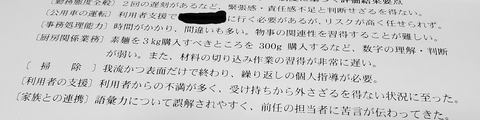 〔勤務態度全般〕2回の遅刻があるなど、緊張感・責任感不足と判断せざるを得ない。
〔公用車の運転〕利用者支援で に行く必要があるが、リスクが高く任せられず。
〔事務処理能力〕時間がかかり、間違いも多い。物事の関連性を習得することが難しい。
〔厨房関係業務〕素麺を3kg購入すべきところを 300g 購入するなど、数字の理解・判断
が弱い。また、材料の切り込み作業の習得が非常に遅い。
〔 掃 除 〕我流かつ表面だけで終わり、繰り返しの個人指導が必要。
〔利用者の支援〕利用者からの不満が多く、受け持ちから外さざるを得ない状況に至った。
〔家族との連携〕語彙力について誤解されやすく、前任の担当者に苦言が伝わってきた。